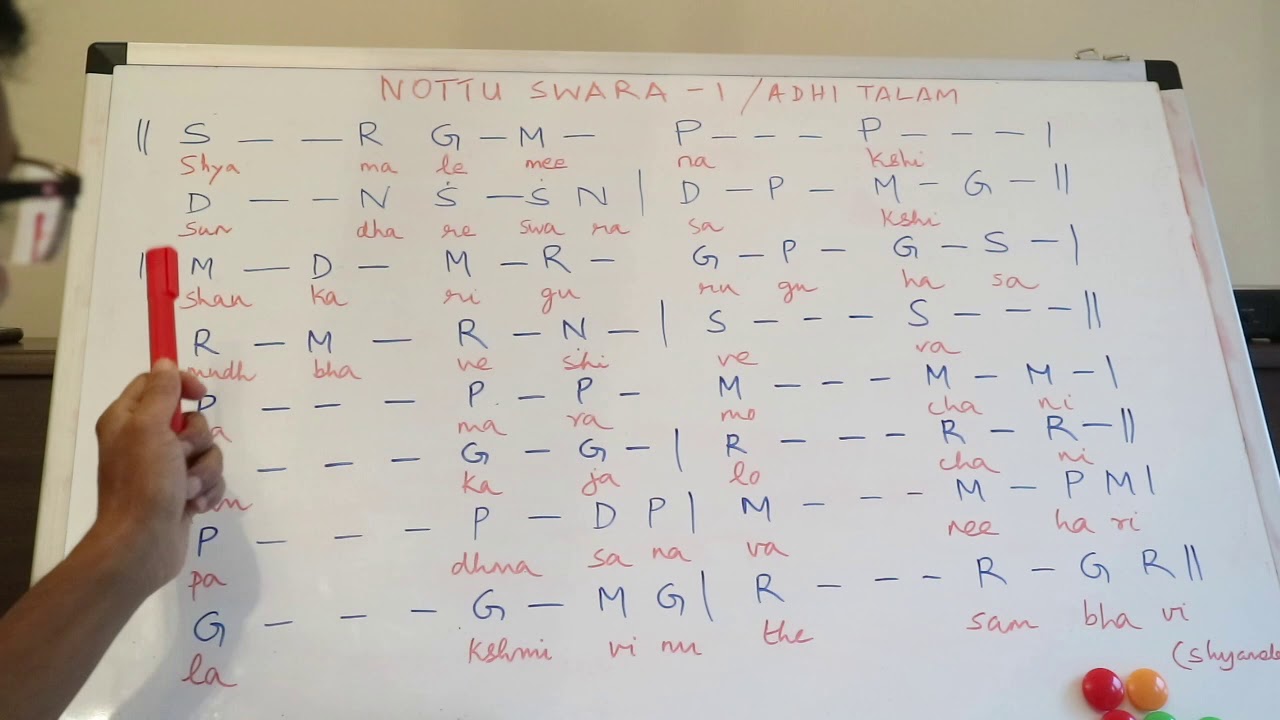 NOTTU SWARA - 1 / ADHI TALAM
|| S - - R G - M - P - - - P - - - |
Shya ma le mee na kshi
D - - N Ṡ - Ṡ N | D - P - M - G - ||
Sun dha re swa ra sa kshi
| M - D - M - R - G - P - G - S - |
shan ka ri gu ru gu ha sa
R - M - R - N - | S - - - S - - - ||
mudh bha ve shi ve va
P - - - P - P - M - - - M - M - |
ma ra mo cha ni
- - - G - G - | R - - - R - R - ||
ka ja lo cha ni
P - - - P - D P | M - - - M - P M |
pa dhma sa na va nee ha ri
G - - - G - M G | R - - - R - G R ||
la kshmi vi nu the sam bha vi